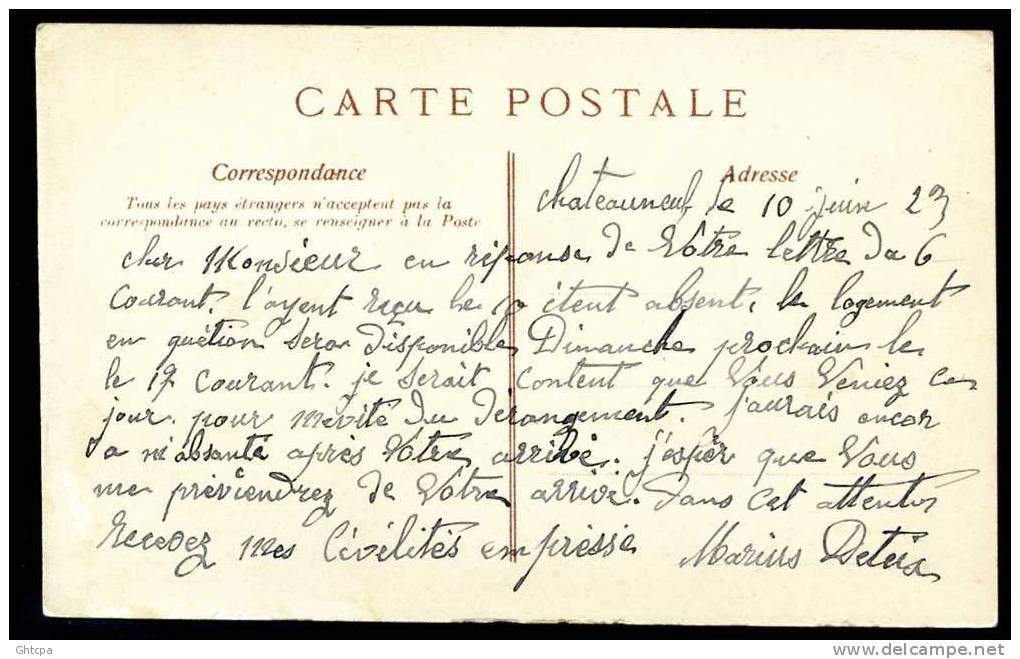 CARTE POSTALE
Correspondance
Adresse
Tous les pays étrangers n'acceptent pas la
correspondance au recto, se renseigner à la Poste
Chateauneuf le 10 juin 23
cher Monsieur en réponse de Vôtre lettre du 6
Courant, l'ayent reçu le étent absent, le logement
en quétion sera disponible Dimanche prochain le
le 17 courant. je serait content que Vous Veniez ce
jour. pour mevité du dérangement. j'aurais encor
a m'absanté après Vôtre arribé. j'espèr que Vous
me préviendrez de Vôtre arrivé. dans cet attente
Recevez mes Civélités empréssé Marius
Ghtcpa
www.delcampe.net